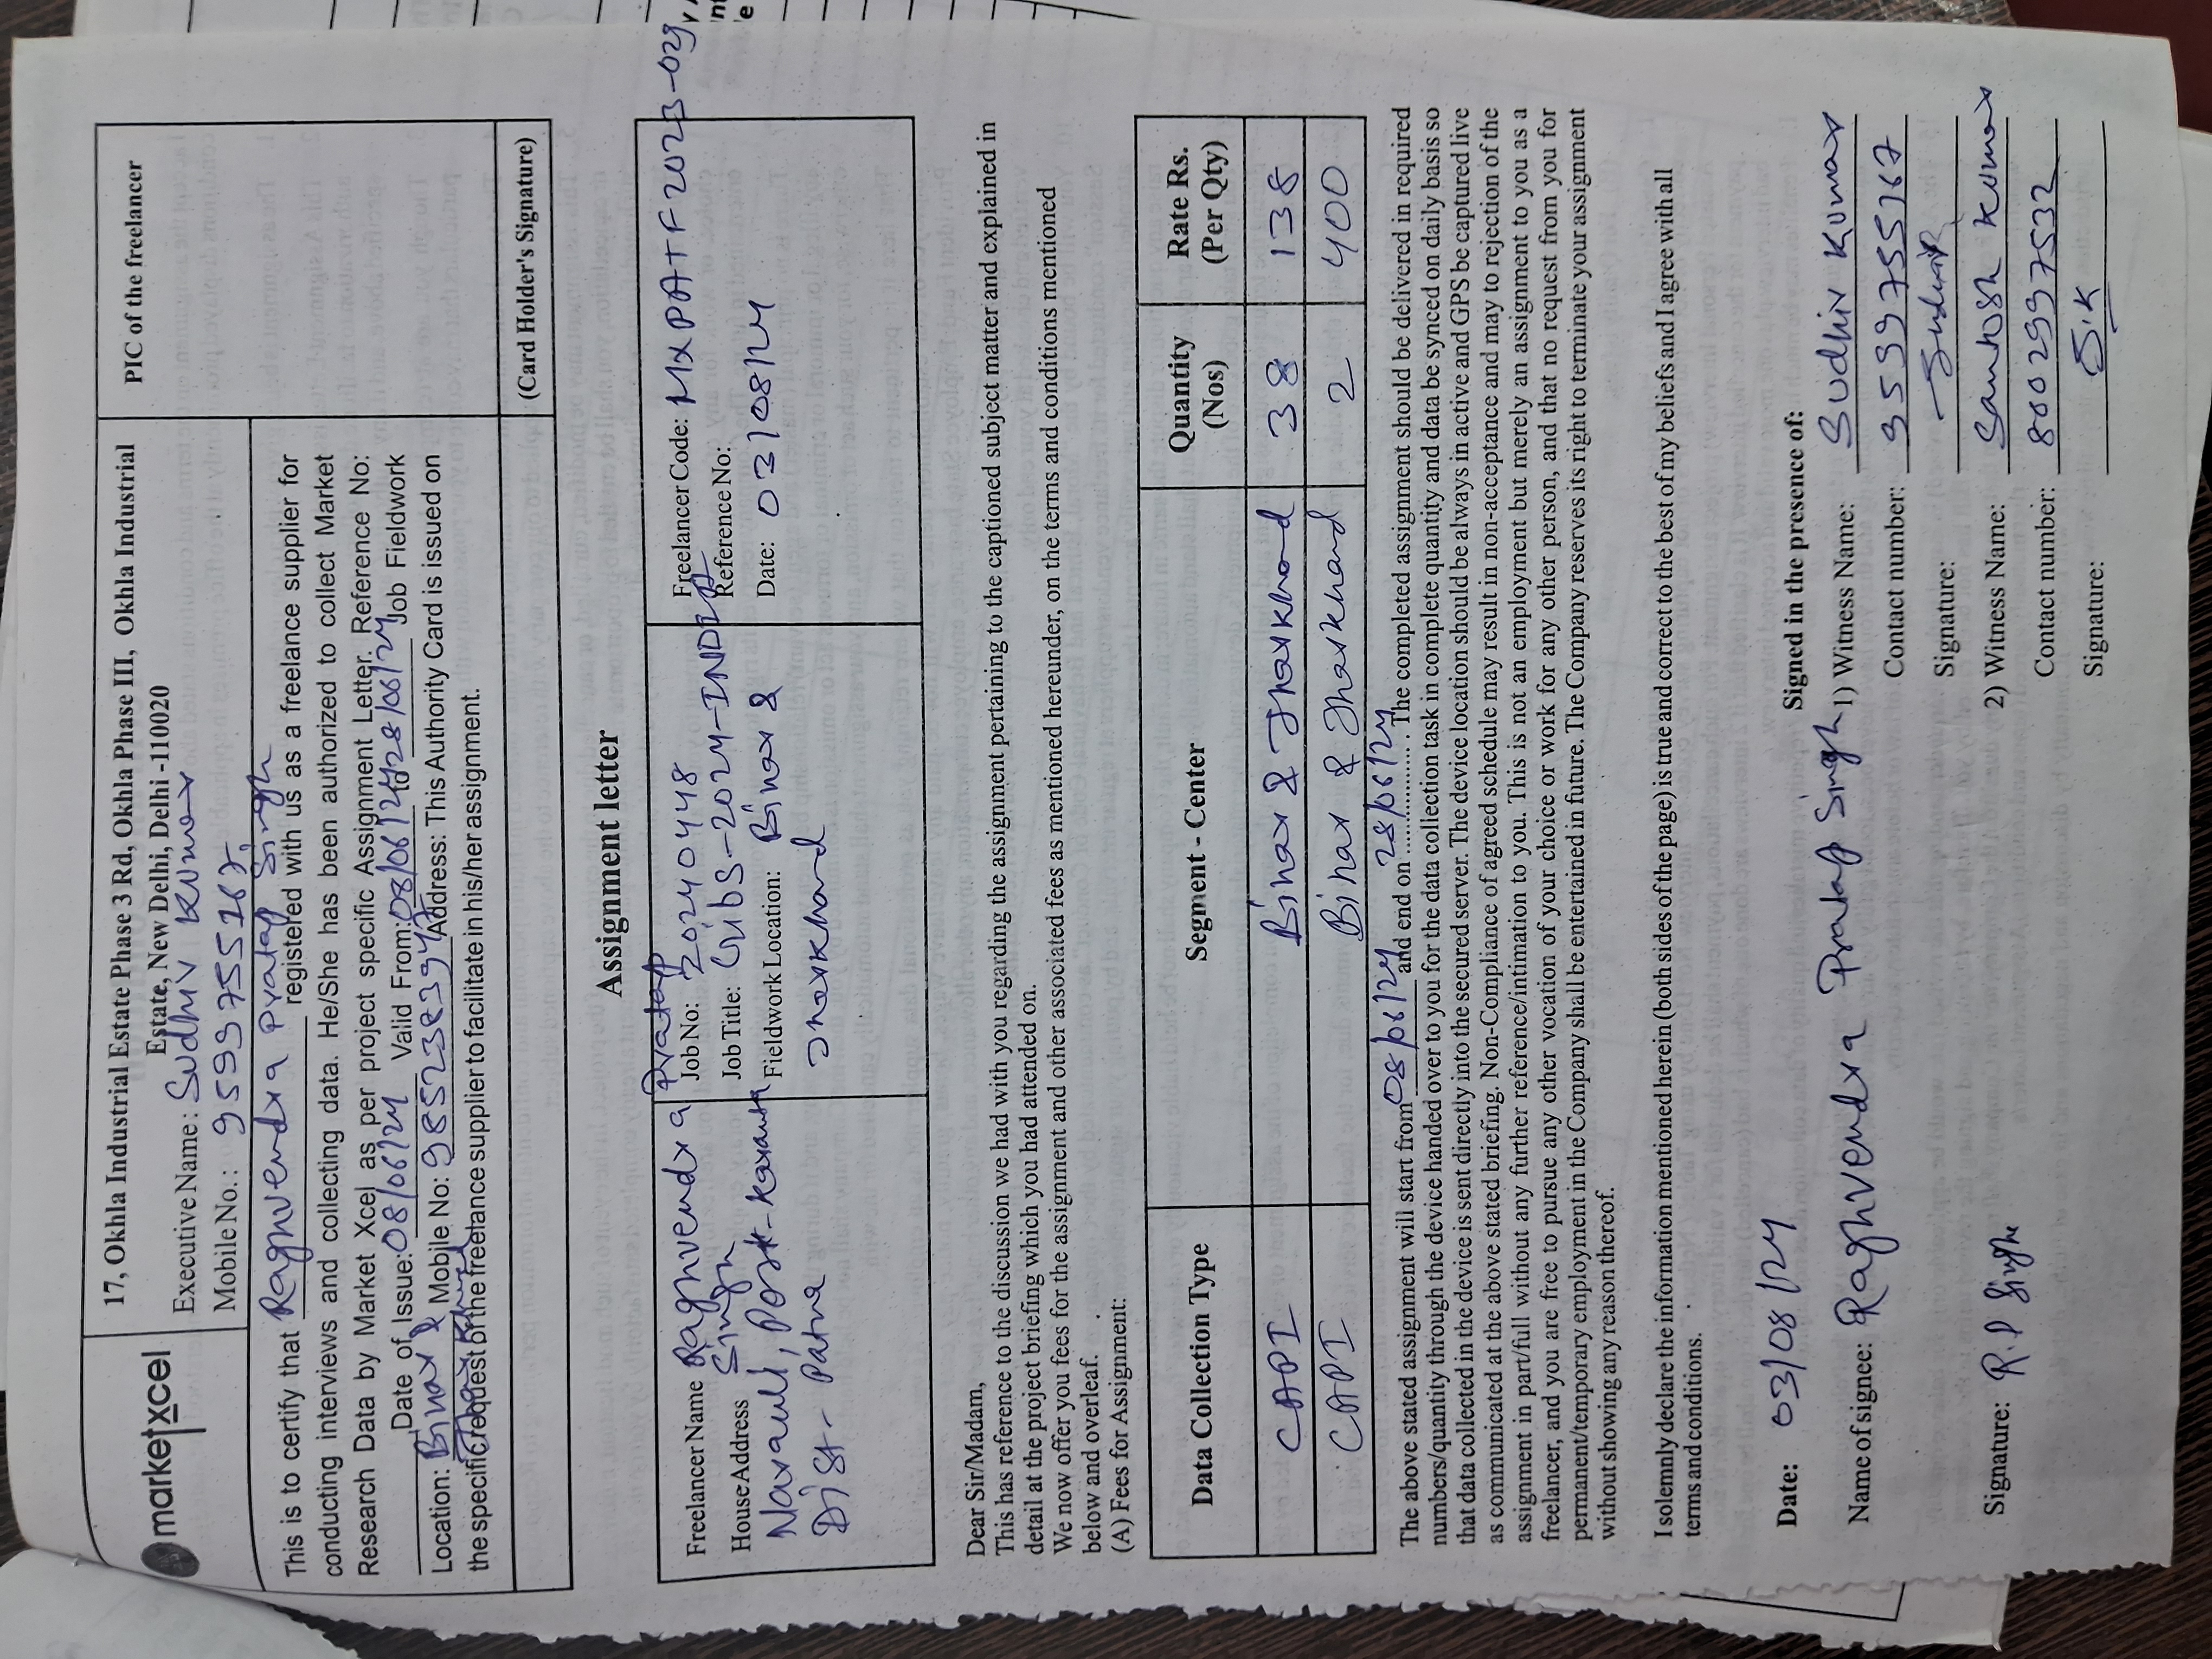 marketxcel
17, Okhla Industrial Estate Phase 3 Rd, Okhla Phase III, Okhla Industrial
Estate, New Delhi, Delhi -110020
PIC of the freelancer
Executive Name: Sudhir Kumar
Mobile No.: 9599755167
This is to certify that Raghvendra Pratap Singh registered with us as a freelance supplier for
conducting interviews and collecting data. He/She has been authorized to collect Market
Research Data by Market Xcel as per project specific Assignment Letter. Reference No:
Date of Issue: 08/06/24 Valid From: 08/06/24 to 28/06/24 Job Fieldwork
Location: Bihar & Jharkhand Mobile No: Address: This Authority Card is issued on
the specific request of the freelance supplier to facilitate in his/her assignment.
(Card Holder's Signature)
Assignment letter
Freelancer Name Raghvendra Pratap
Singh
House Address
Naraull, Post-Karauta
Dist- Patna
Job No: 20240448
Job Title: GibS-2024-INDIA
Fieldwork Location: Bihar &
Jharkhand
Freelancer Code: MXPATF2023-029
Reference No:
Date: 03/08/24
Dear Sir/Madam,
This has reference to the discussion we had with you regarding the assignment pertaining to the captioned subject matter and explained in
detail at the project briefing which you had attended on.
We now offer you fees for the assignment and other associated fees as mentioned hereunder, on the terms and conditions mentioned
below and overleaf.
(A) Fees for Assignment:
Data Collection Type Segment - Center Quantity (Nos) Rate Rs. (Per Qty)
CAPI Bihar & Jharkhand 38 138
CAPI Bihar & Jharkhand 2 400
The above stated assignment will start from 08/06/24 and end on 28/06/24. The completed assignment should be delivered in required
numbers/quantity through the device handed over to you for the data collection task in complete quantity and data be synced on daily basis so
that data collected in the device is sent directly into the secured server. The device location should be always in active and GPS be captured live
as communicated at the above stated briefing. Non-Compliance of agreed schedule may result in non-acceptance and may to rejection of the
assignment in part/full without any further reference/intimation to you. This is not an employment but merely an assignment to you as a
freelancer, and you are free to pursue any other vocation of your choice or work for any other person, and that no request from you for
permanent/temporary employment in the Company shall be entertained in future. The Company reserves its right to terminate your assignment
without showing any reason thereof.
I solemnly declare the information mentioned herein (both sides of the page) is true and correct to the best of my beliefs and I agree with all
terms and conditions.
Date: 03/08/24
Name of signee: Raghvendra Pratap Singh
Signature: R.P Singh
Signed in the presence of:
1) Witness Name: Sudhir Kumar
Contact number: 9599755167
Signature: Sudhir
2) Witness Name: Santosh Kumar
Contact number: 8002997532
Signature: S.K